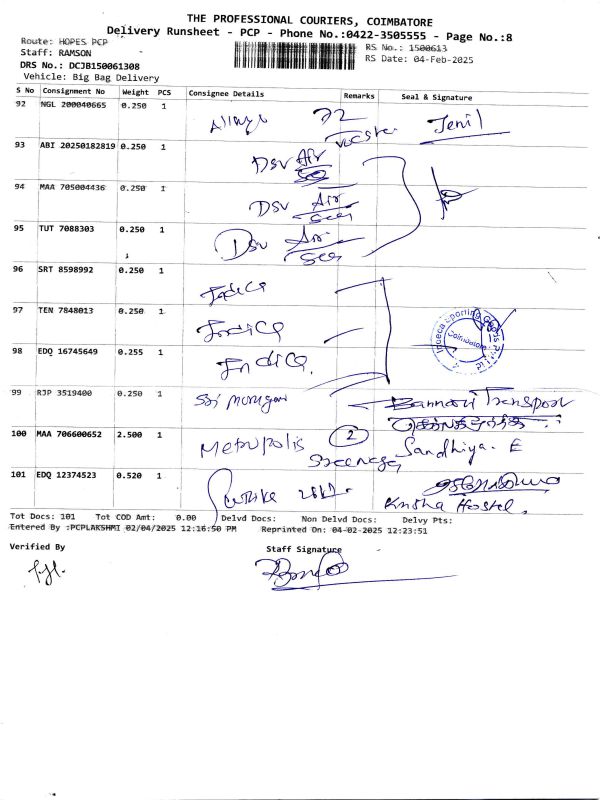 THE PROFESSIONAL COURIERS, COIMBATORE
Delivery Runsheet - PCP - Phone No.:0422-3505555 - Page No.:8
Route: HOPES PCP
RS No.: 1500613
Staff: RAMSON
RS Date: 04-Feb-2025
DRS No.: DCJB150061308
Vehicle: Big Bag Delivery
S No Consignment No Weight PCS Consignee Details Remarks Seal & Signature
92 NGL 200040665 0.250 1 72 Jenil
93 ABI 20250182819 0.250 1 DSV Air
94 MAA 705004436 0.250 1 DSV Air
95 TUT 7088303 0.250 1 DSV Air
96 SRT 8598992 0.250 1 Indica
97 TEN 7848013 0.250 1 Indica
Coimbatore
98 EDQ 16745649 0.255 1 Indica.
99 RJP 3519400 0.250 1 Sri murugan Bannari Transport
100 MAA 706600652 2.500 1 Metropolis 2 Sandhiya. E
101 EDQ 12374523 0.520 1
Hostel.
Tot Docs: 101 Tot COD Amt: 0.00 Delvd Docs: Non Delvd Docs: Delvy Pts:
Entered By :PCPLAKSHMI 02/04/2025 12:16:50 PM Reprinted On: 04-02-2025 12:23:51
Verified By Staff Signature